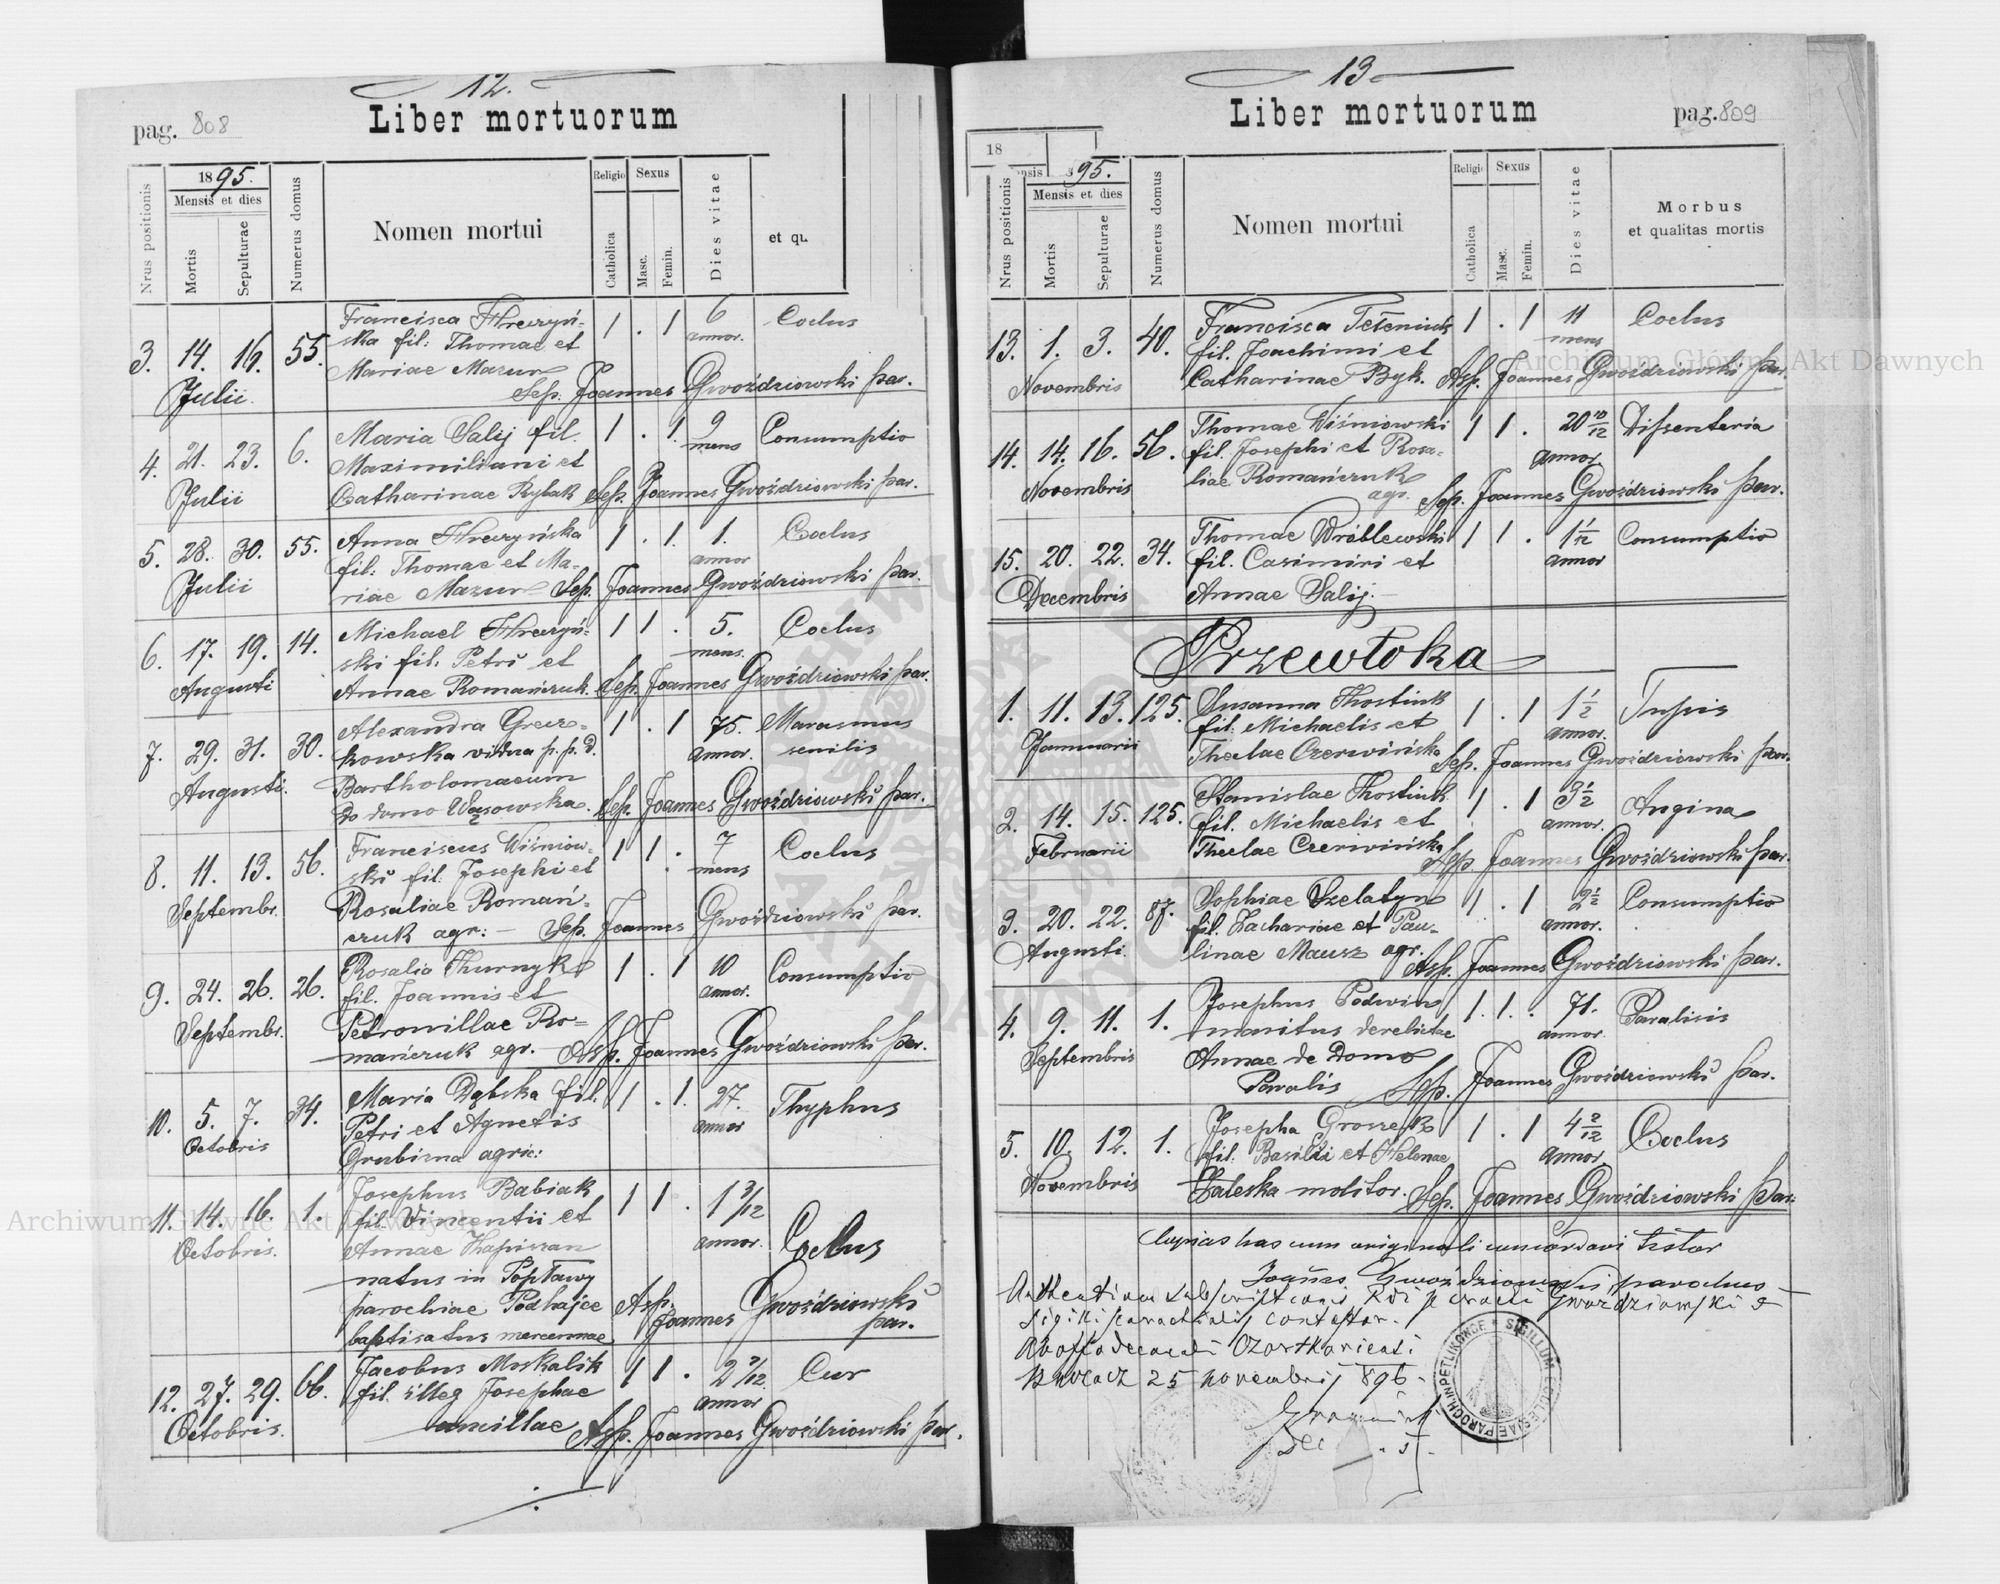 12.
Liber mortuorum
pag. 808
1895.
Nrus positionis
Mensis et dies
Mortis
Sepulturae
Numerus domus
Nomen mortui
Religio
Catholica
Sexus
Masc.
Femin.
Dies vitae
et qu.
3. 14. 16. 55. Francisca Hreczyń- 1 . 1 6 Coclus
ska fil: Thomae et annor.
Julii. Mariae Mazur
Sep. Joannes Gwoździowski par.
4. 21. 23. 6. Maria Salij fil. 1 . 1. 9 Consumptio
Maximiliani et mens
Julii Catharinae Rybak Sep. Joannes Gwoździowski par.
5. 28. 30. 55. Anna Hreczyńska 1 . 1. 1. Coclus
fil: Thomae et Ma- annor
Julii riae Mazur Sep. Joannes Gwoździowski par.
6. 17. 19. 14. Michael Hreczyń- 1 1 . 5. Coclus
ski fil. Petri et mens.
Augusti Annae Romańczuk. Sep. Joannes Gwoździowski par.
7. 29. 31. 30. Alexandra Grecz- 1 . 1 75. Marasmus
kowska vidua p. p. d. annor. senilis
Augusti. Bartholomaeum
de domo Wąsowska. Sep. Joannes Gwoździowski par.
8. 11. 13. 56. Franciscus Wiśniow- 1 1 . 7 Coclus
ski fil. Josephi et mens
Septembr. Rosaliae Romań-
czuk agr: — Sep. Joannes Gwoździowski par.
9. 24. 26. 26. Rosalia 1 . 1 10 Consumptio
fil. Joannis et annor.
Septembr. Petronillae Ro-
mańczuk agr. — Asp. Joannes Gwoździowski par.
10. 5. 7. 34. Maria Dąbska fil. 1 . 1. 27. Thyphus
Octobris Petri et Agnetis annor
Grubizna agric:
11. 14. 16. 1. Josephus Babiak 1 1 . 1 3/12
fil. Vincentii et annor. Coclus
Octobris. Annae
natus in Popławy
parochiae Podhajce Asp. Joannes Gwoździowski
baptisatus mercennae par.
12. 27. 29. 66. Jacobus Moskalik 1 1 . 2 2/12 Cur
fil. illeg Josephae annor
Octobris. ancillae Asp. Joannes Gwoździowski par.
13
Liber mortuorum
pag. 809
18
ensis
95.
Nrus positionis
Mensis et dies
Mortis
Sepulturae
Numerus domus
Nomen mortui
Religio
Catholica
Sexus
Masc.
Femin.
Dies vitae
Morbus
et qualitas mortis
13. 1. 3. 40. Francisca Teteniuk 1 . 1 11 Coclus
fil. Joachimi et mens
Novembris Catharinae Byk. Asp. Joannes Gwoździowski par.
14. 14. 16. 56. Thomae Wiśniowski 1 1 . 20 10/12 Dissenteria
fil. Josephi et Rosa- annor
Novembris liae Romańczuk
agr. Sep. Joannes Gwoździowski par.
15. 20. 22. 34. Thomae Wróblewski 1 1 . 1 1/12 Consumptio
fil. Casimiri et annor
Decembris Annae Salij. —
Przewłoka
1. 11. 13. 125. Susanna Kostiuk 1 . 1 1 1/2 Tussis
fil. Michaelis et annor.
Januarii Theclae Czerwińska Sep. Joannes Gwoździowski par.
2. 14. 15. 125. Stanislae Kostiuk 1 . 1 3 1/2 Angina
fil. Michaelis et annor.
Februarii Theclae Czerwińska Asp. Joannes Gwoździowski par.
3. 20. 22. 87. Sophiae Szelatyn 1 . 1 2 1/2 Consumptio
fil. Zachariae et Pau- annor.
Augusti. linae Mausz agr. Asp. Joannes Gwoździowski par.
4. 9. 11. 1. Josephus Podwin 1. 1. . 71. Paralisis
maritus derelictae annor.
Septembris Annae de Domo
Pawalis Asp. Joannes Gwoździowski par.
5. 10. 12. 1. Josepha Groszek 1 . 1 4 2/12 Coclus
fil. Basilii et Helenae annor
Novembris Zaleska molitor. Sep. Joannes Gwoździowski par.
Copias has cum originali concordari testor
Joannes Gwoździowski parochus
Authenticam subscriptionis Rdi parochi Gwoździowski et
sigilli parochialis contestor.
Ab off decanali Czortkoviensi
25 novembris 896.
SIGILLUM ECCLESIAE PAROCH. IN PETLIKOWCE
Archiwum Główne Akt Dawnych
Archiwum Główne Akt Dawnych